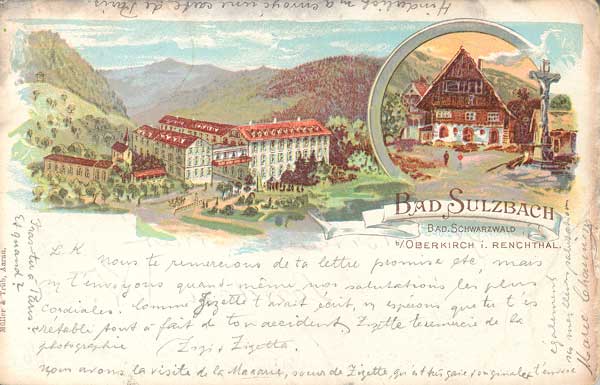 m'a envoyé une carte de Paris
BAD SULZBACH
BAD. SCHWARZWALD
B/OBERKIRCH i. RENCHTHAL.
Müller & Trüb, Aarau.
Et quand?
L. K
Nous te remercions de ta lettre promise etc, mais
t'envoyons quand-même nos salutations les plus
cordiales. Comme Zizette t'avait écrit, nous espérons que tu t'es
retabli tout à fait de ton accident. Zizette te remercie de la
photographie
Zigi + Zizetta.
Nous avons la visite de la soeur de Zizette, qui est
également
Marie